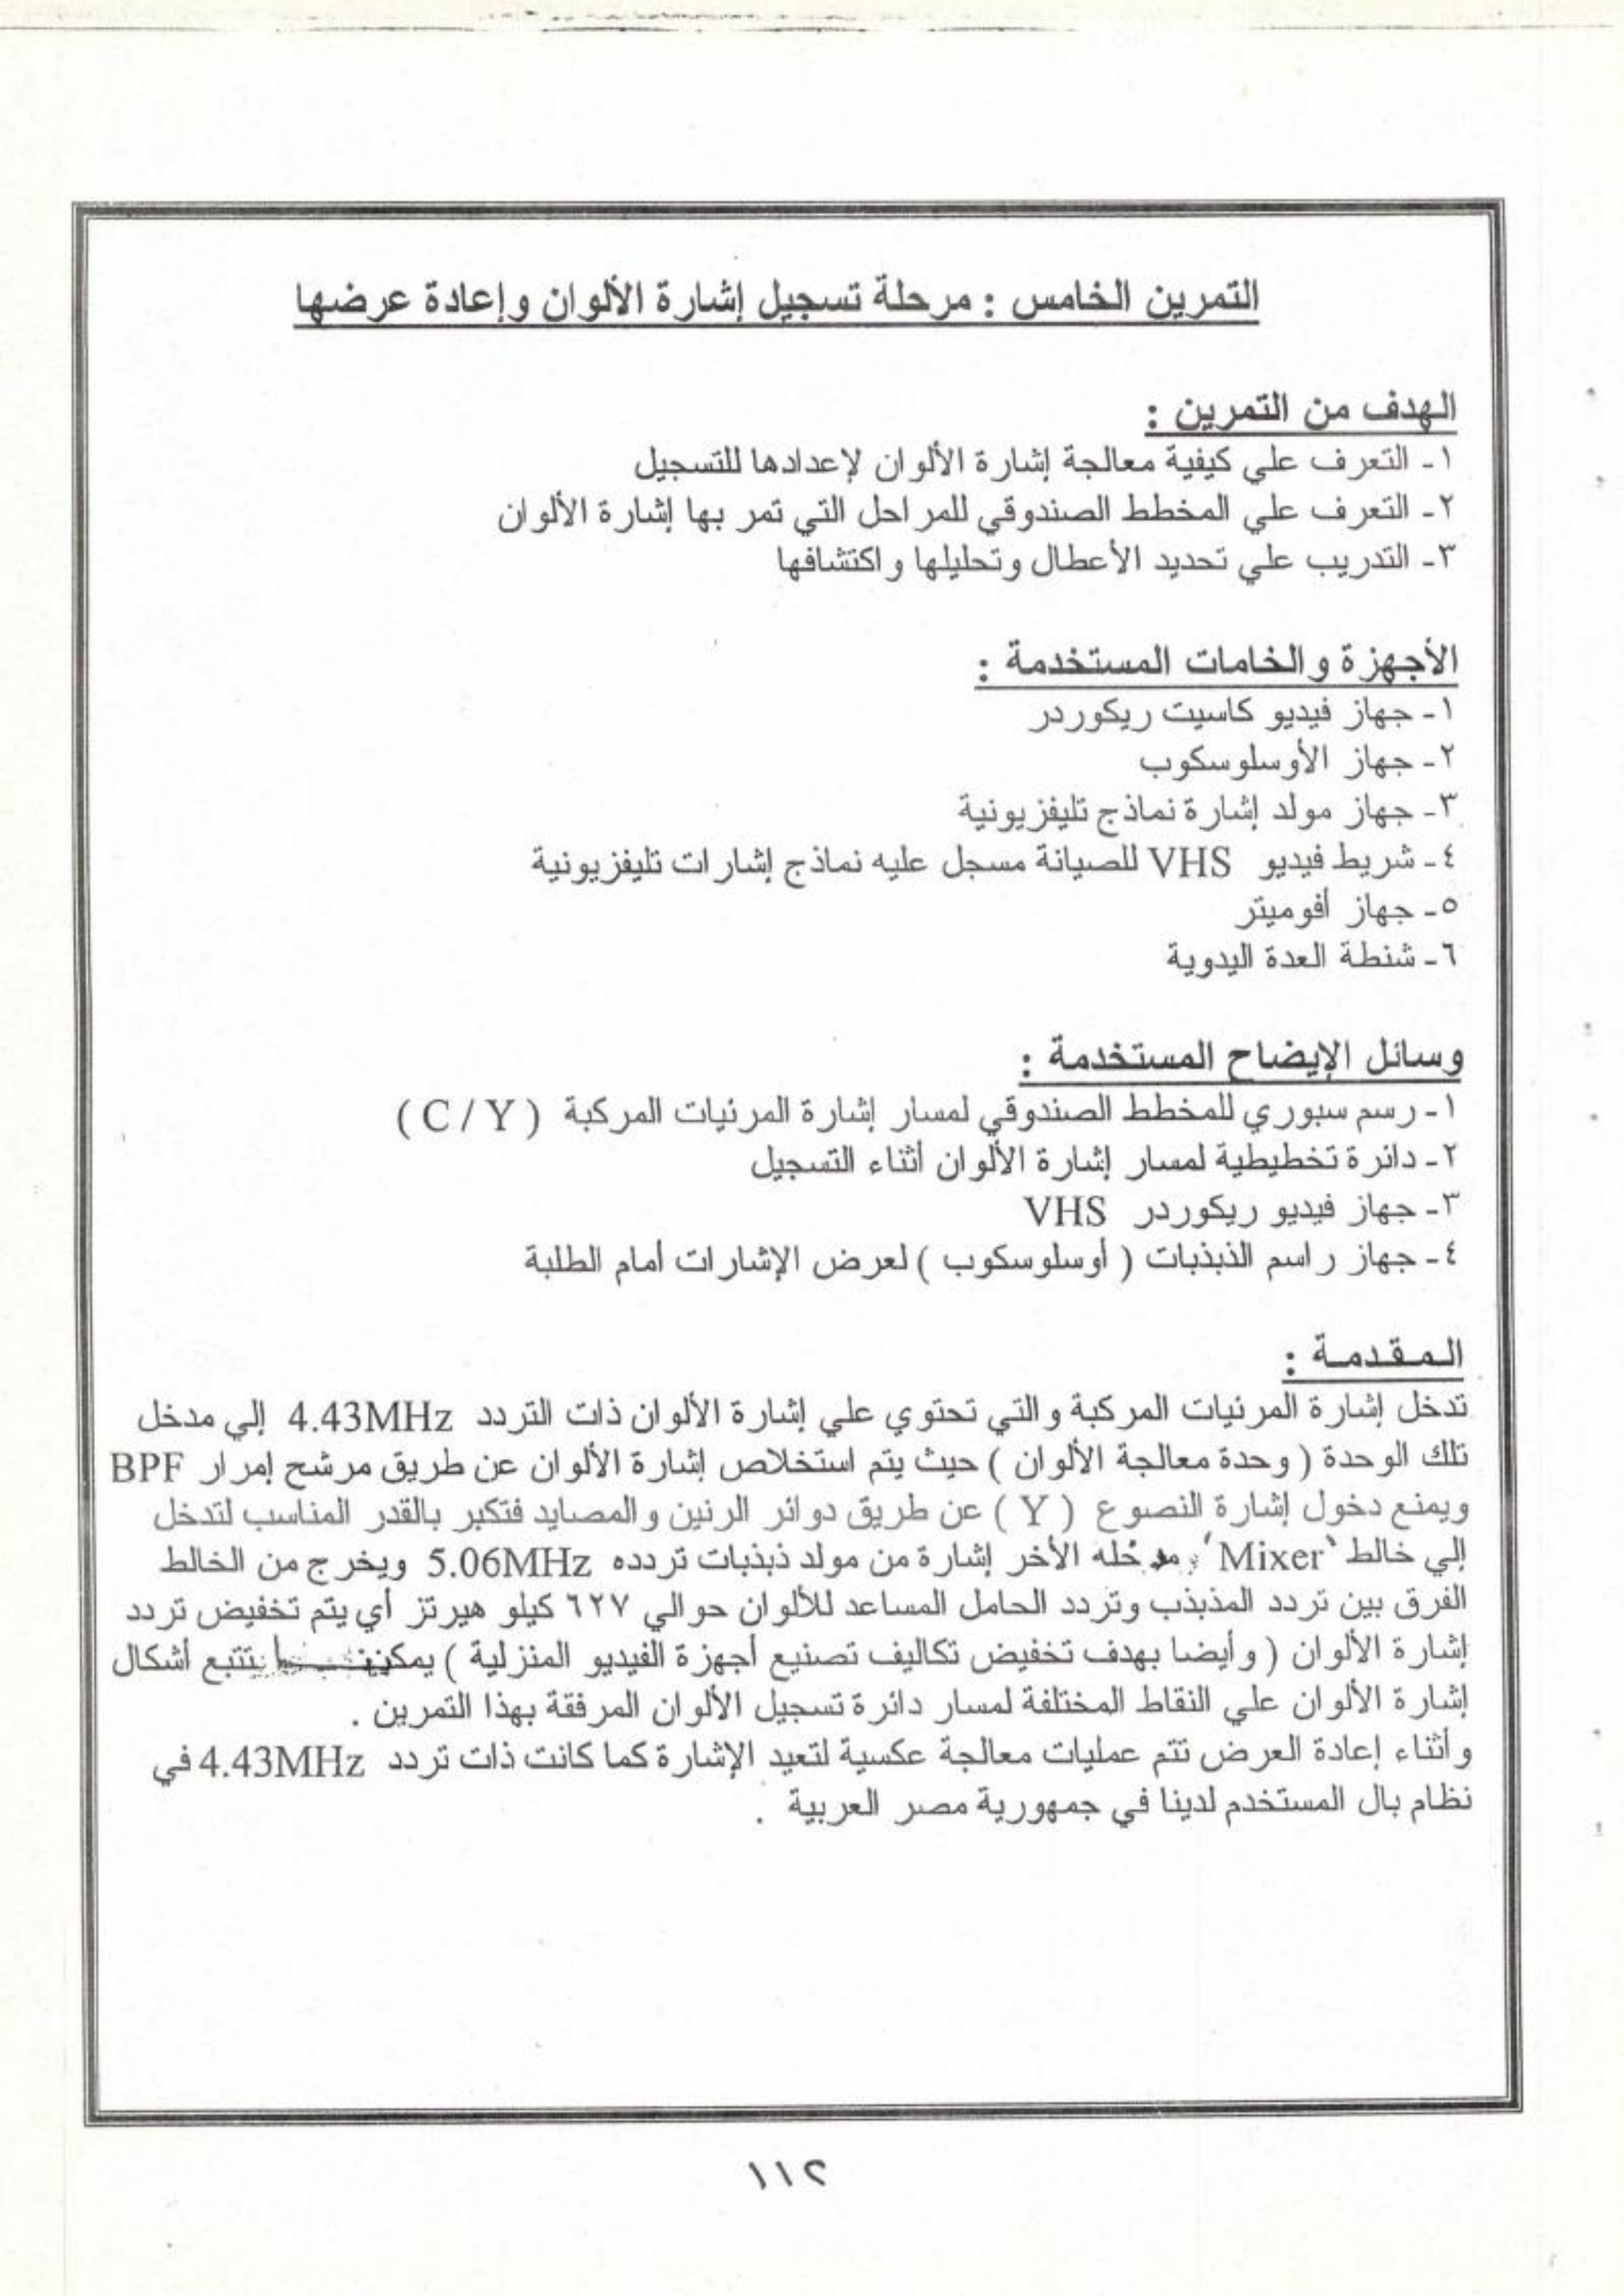 التمرين الخامس : مرحلة تسجيل إشارة الألوان وإعادة عرضها
الهدف من التمرين :
١- التعرف علي كيفية معالجة إشارة الألوان لإعدادها للتسجيل
٢- التعرف علي المخطط الصندوقي للمراحل التي تمر بها إشارة الألوان
٣- التدريب علي تحديد الأعطال وتحليلها واكتشافها
الأجهزة والخامات المستخدمة :
١- جهاز فيديو كاسيت ريكوردر
٢- جهاز الأوسلوسكوب
٣- جهاز مولد إشارة نماذج تليفزيونية
٤- شريط فيديو VHS للصيانة مسجل عليه نماذج إشارات تليفزيونية
٥- جهاز أفوميتر
٦- شنطة العدة اليدوية
وسائل الإيضاح المستخدمة :
١- رسم سبوري للمخطط الصندوقي لمسار إشارة المرئيات المركبة ( C / Y )
٢- دائرة تخطيطية لمسار إشارة الألوان أثناء التسجيل
٣- جهاز فيديو ريكوردر VHS
٤- جهاز راسم الذبذبات ( أوسلوسكوب ) لعرض الإشارات أمام الطلبة
المـقـدمـة :
تدخل إشارة المرئيات المركبة والتي تحتوي علي إشارة الألوان ذات التردد 4.43MHz إلي مدخل
تلك الوحدة ( وحدة معالجة الألوان ) حيث يتم استخلاص إشارة الألوان عن طريق مرشح إمرار BPF
ويمنع دخول إشارة النصوع ( Y ) عن طريق دوائر الرنين والمصايد فتكبر بالقدر المناسب لتدخل
إلي خالط 'Mixer' الأخر إشارة من مولد ذبذبات تردده 5.06MHz ويخرج من الخالط
الفرق بين تردد المذبذب وتردد الحامل المساعد للألوان حوالي ٦٢٧ كيلو هيرتز أي يتم تخفيض تردد
إشارة الألوان ( وأيضا بهدف تخفيض تكاليف تصنيع أجهزة الفيديو المنزلية ) تتبع أشكال
إشارة الألوان علي النقاط المختلفة لمسار دائرة تسجيل الألوان المرفقة بهذا التمرين .
وأثناء إعادة العرض تتم عمليات معالجة عكسية لتعيد الإشارة كما كانت ذات تردد 4.43MHz في
نظام بال المستخدم لدينا في جمهورية مصر العربية .
١١٢